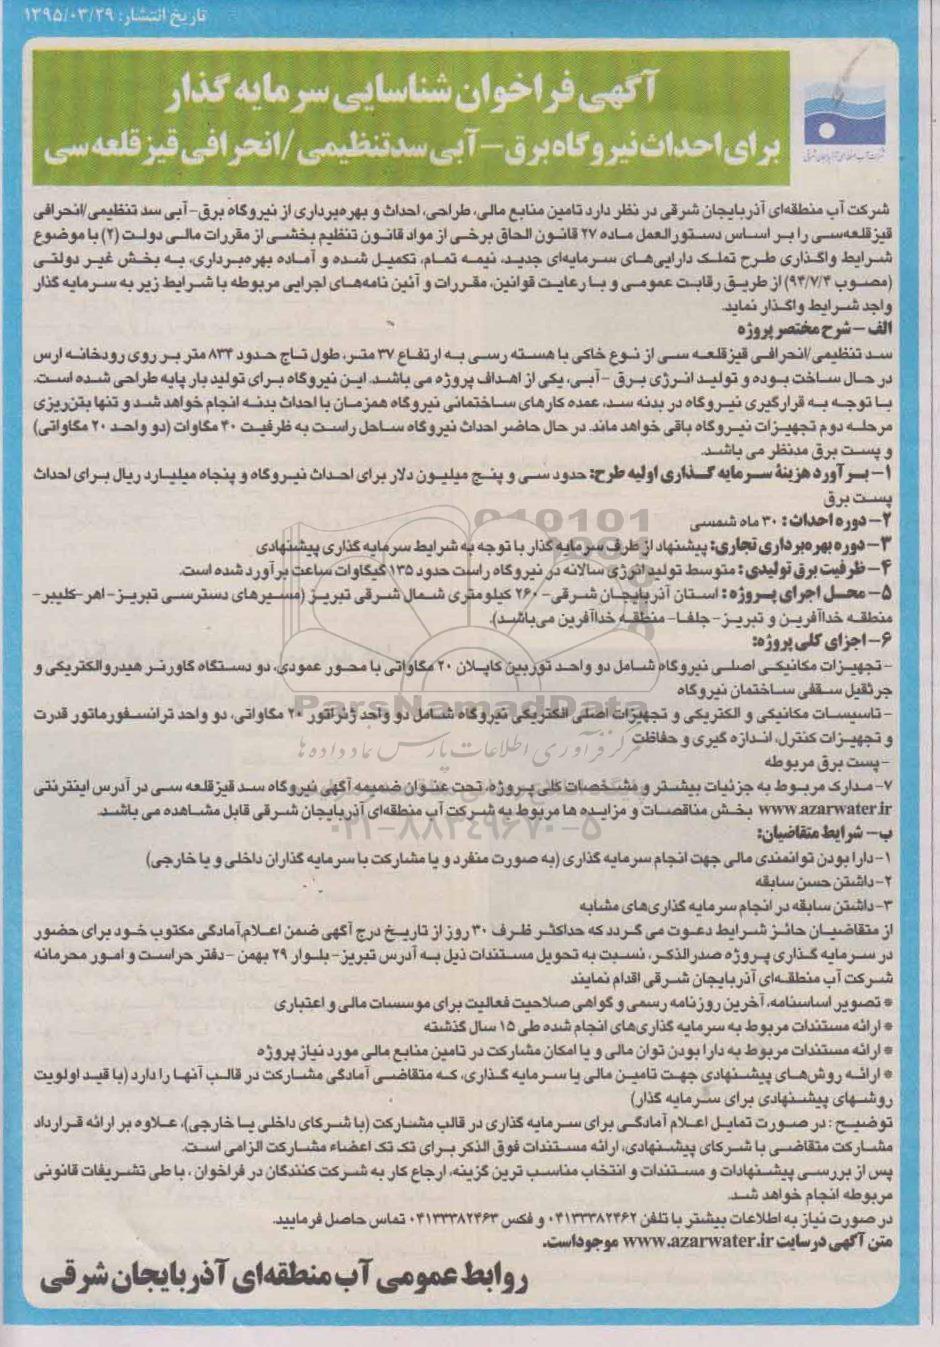 تاریخ انتشار: ۱۳۹۵/۰۳/۲۹
آگهی فراخوان شناسایی سرمایه گذار
برای احداث نیروگاه برق – آبی سد تنظیمی /انحرافی قیز قلعه سی
شرکت آب منطقه‌ای آذربایجان شرقی
شرکت آب منطقه‌ای آذربایجان شرقی در نظر دارد تامین منابع مالی، طراحی، احداث و بهره‌برداری از نیروگاه برق- آبی سد تنظیمی/انحرافی
قیز قلعه‌سی را بر اساس دستورالعمل ماده ۲۷ قانون الحاق برخی از مواد قانون تنظیم بخشی از مقررات مالی دولت (۲) با موضوع
شرایط واگذاری طرح تملک دارایی‌های سرمایه‌ای جدید، نیمه تمام، تکمیل شده و آماده بهره‌برداری، به بخش غیر دولتی
(مصوب ۹۴/۷/۴) از طریق رقابت عمومی و با رعایت قوانین، مقررات و آئین نامه‌های اجرایی مربوطه با شرایط زیر به سرمایه گذار
واجد شرایط واگذار نماید.
الف – شرح مختصر پروژه
سد تنظیمی/انحرافی قیز قلعه سی از نوع خاکی با هسته رسی به ارتفاع ۳۷ متر، طول تاج حدود ۸۳۴ متر بر روی رودخانه ارس
در حال ساخت بوده و تولید انرژی برق – آبی، یکی از اهداف پروژه می باشد. این نیروگاه برای تولید بار پایه طراحی شده است.
با توجه به قرارگیری نیروگاه در بدنه سد، عمده کارهای ساختمانی نیروگاه همزمان با احداث بدنه انجام خواهد شد و تنها بتن‌ریزی
مرحله دوم تجهیزات نیروگاه باقی خواهد ماند. در حال حاضر احداث نیروگاه ساحل راست به ظرفیت ۴۰ مگاوات (دو واحد ۲۰ مگاواتی)
و پست برق مدنظر می باشد.
۱- برآورد هزینهٔ سرمایه گذاری اولیه طرح: حدود سی و پنج میلیون دلار برای احداث نیروگاه و پنجاه میلیارد ریال برای احداث
پست برق
۲- دوره احداث: ۳۰ ماه شمسی
۳- دوره بهره‌برداری تجاری: پیشنهاد از طرف سرمایه گذار با توجه به شرایط سرمایه گذاری پیشنهادی
۴- ظرفیت برق تولیدی: متوسط تولید انرژی سالانه در نیروگاه راست حدود ۱۳۵ گیگاوات ساعت برآورد شده است.
۵- محل اجرای پروژه: استان آذربایجان شرقی- ۲۶۰ کیلومتری شمال شرقی تبریز (مسیرهای دسترسی تبریز- اهر-کلیبر-
منطقه خداآفرین و تبریز- جلفا- منطقه خداآفرین می‌باشد).
۶- اجزای کلی پروژه:
- تجهیزات مکانیکی اصلی نیروگاه شامل دو واحد توربین کاپلان ۲۰ مگاواتی با محور عمودی، دو دستگاه گاورنر هیدروالکتریکی و
جرثقیل سقفی ساختمان نیروگاه
- تاسیسات مکانیکی و الکتریکی و تجهیزات اصلی الکتریکی نیروگاه شامل دو واحد ژنراتور ۲۰ مگاواتی، دو واحد ترانسفورماتور قدرت
و تجهیزات کنترل، اندازه گیری و حفاظت
- پست برق مربوطه
ParsNamadData
مرکز فرآوری اطلاعات پارس نماد داده ها
۰۲۱-۸۸۳۴۹۶۷۰-۵
۷- مدارک مربوط به جزئیات بیشتر و مشخصات کلی پروژه، تحت عنوان ضمیمه آگهی نیروگاه سد قیز قلعه سی در آدرس اینترنتی
www.azarwater.ir بخش مناقصات و مزایده ها مربوط به شرکت آب منطقه‌ای آذربایجان شرقی قابل مشاهده می باشد.
ب- شرایط متقاضیان:
۱-دارا بودن توانمندی مالی جهت انجام سرمایه گذاری (به صورت منفرد و یا مشارکت با سرمایه گذاران داخلی و یا خارجی)
۲-داشتن حسن سابقه
۳-داشتن سابقه در انجام سرمایه گذاری‌های مشابه
از متقاضیان حائز شرایط دعوت می گردد که حداکثر ظرف ۳۰ روز از تاریخ درج آگهی ضمن اعلام آمادگی مکتوب خود برای حضور
در سرمایه گذاری پروژه صدرالذکر، نسبت به تحویل مستندات ذیل به آدرس تبریز- بلوار ۲۹ بهمن – دفتر حراست و امور محرمانه
شرکت آب منطقه‌ای آذربایجان شرقی اقدام نمایند
* تصویر اساسنامه، آخرین روزنامه رسمی و گواهی صلاحیت فعالیت برای موسسات مالی و اعتباری
* ارائه مستندات مربوط به سرمایه گذاری‌های انجام شده طی ۱۵ سال گذشته
* ارائه مستندات مربوط به دارا بودن توان مالی و یا امکان مشارکت در تامین منابع مالی مورد نیاز پروژه
* ارائه روش‌های پیشنهادی جهت تامین مالی یا سرمایه گذاری، که متقاضی آمادگی مشارکت در قالب آنها را دارد (با قید اولویت
روشهای پیشنهادی برای سرمایه گذار)
توضیح: در صورت تمایل اعلام آمادگی برای سرمایه گذاری در قالب مشارکت (با شرکای داخلی یا خارجی)، علاوه بر ارائه قرارداد
مشارکت متقاضی با شرکای پیشنهادی، ارائه مستندات فوق الذکر برای تک تک اعضاء مشارکت الزامی است.
پس از بررسی پیشنهادات و مستندات و انتخاب مناسب ترین گزینه، ارجاع کار به شرکت کنندگان در فراخوان، با طی تشریفات قانونی
مربوطه انجام خواهد شد.
در صورت نیاز به اطلاعات بیشتر با تلفن ۰۴۱۳۳۳۸۲۴۶۲ و فکس ۰۴۱۳۳۳۸۲۴۶۳ تماس حاصل فرمایید.
متن آگهی در سایت www.azarwater.ir موجود است.
روابط عمومی آب منطقه‌ای آذربایجان شرقی